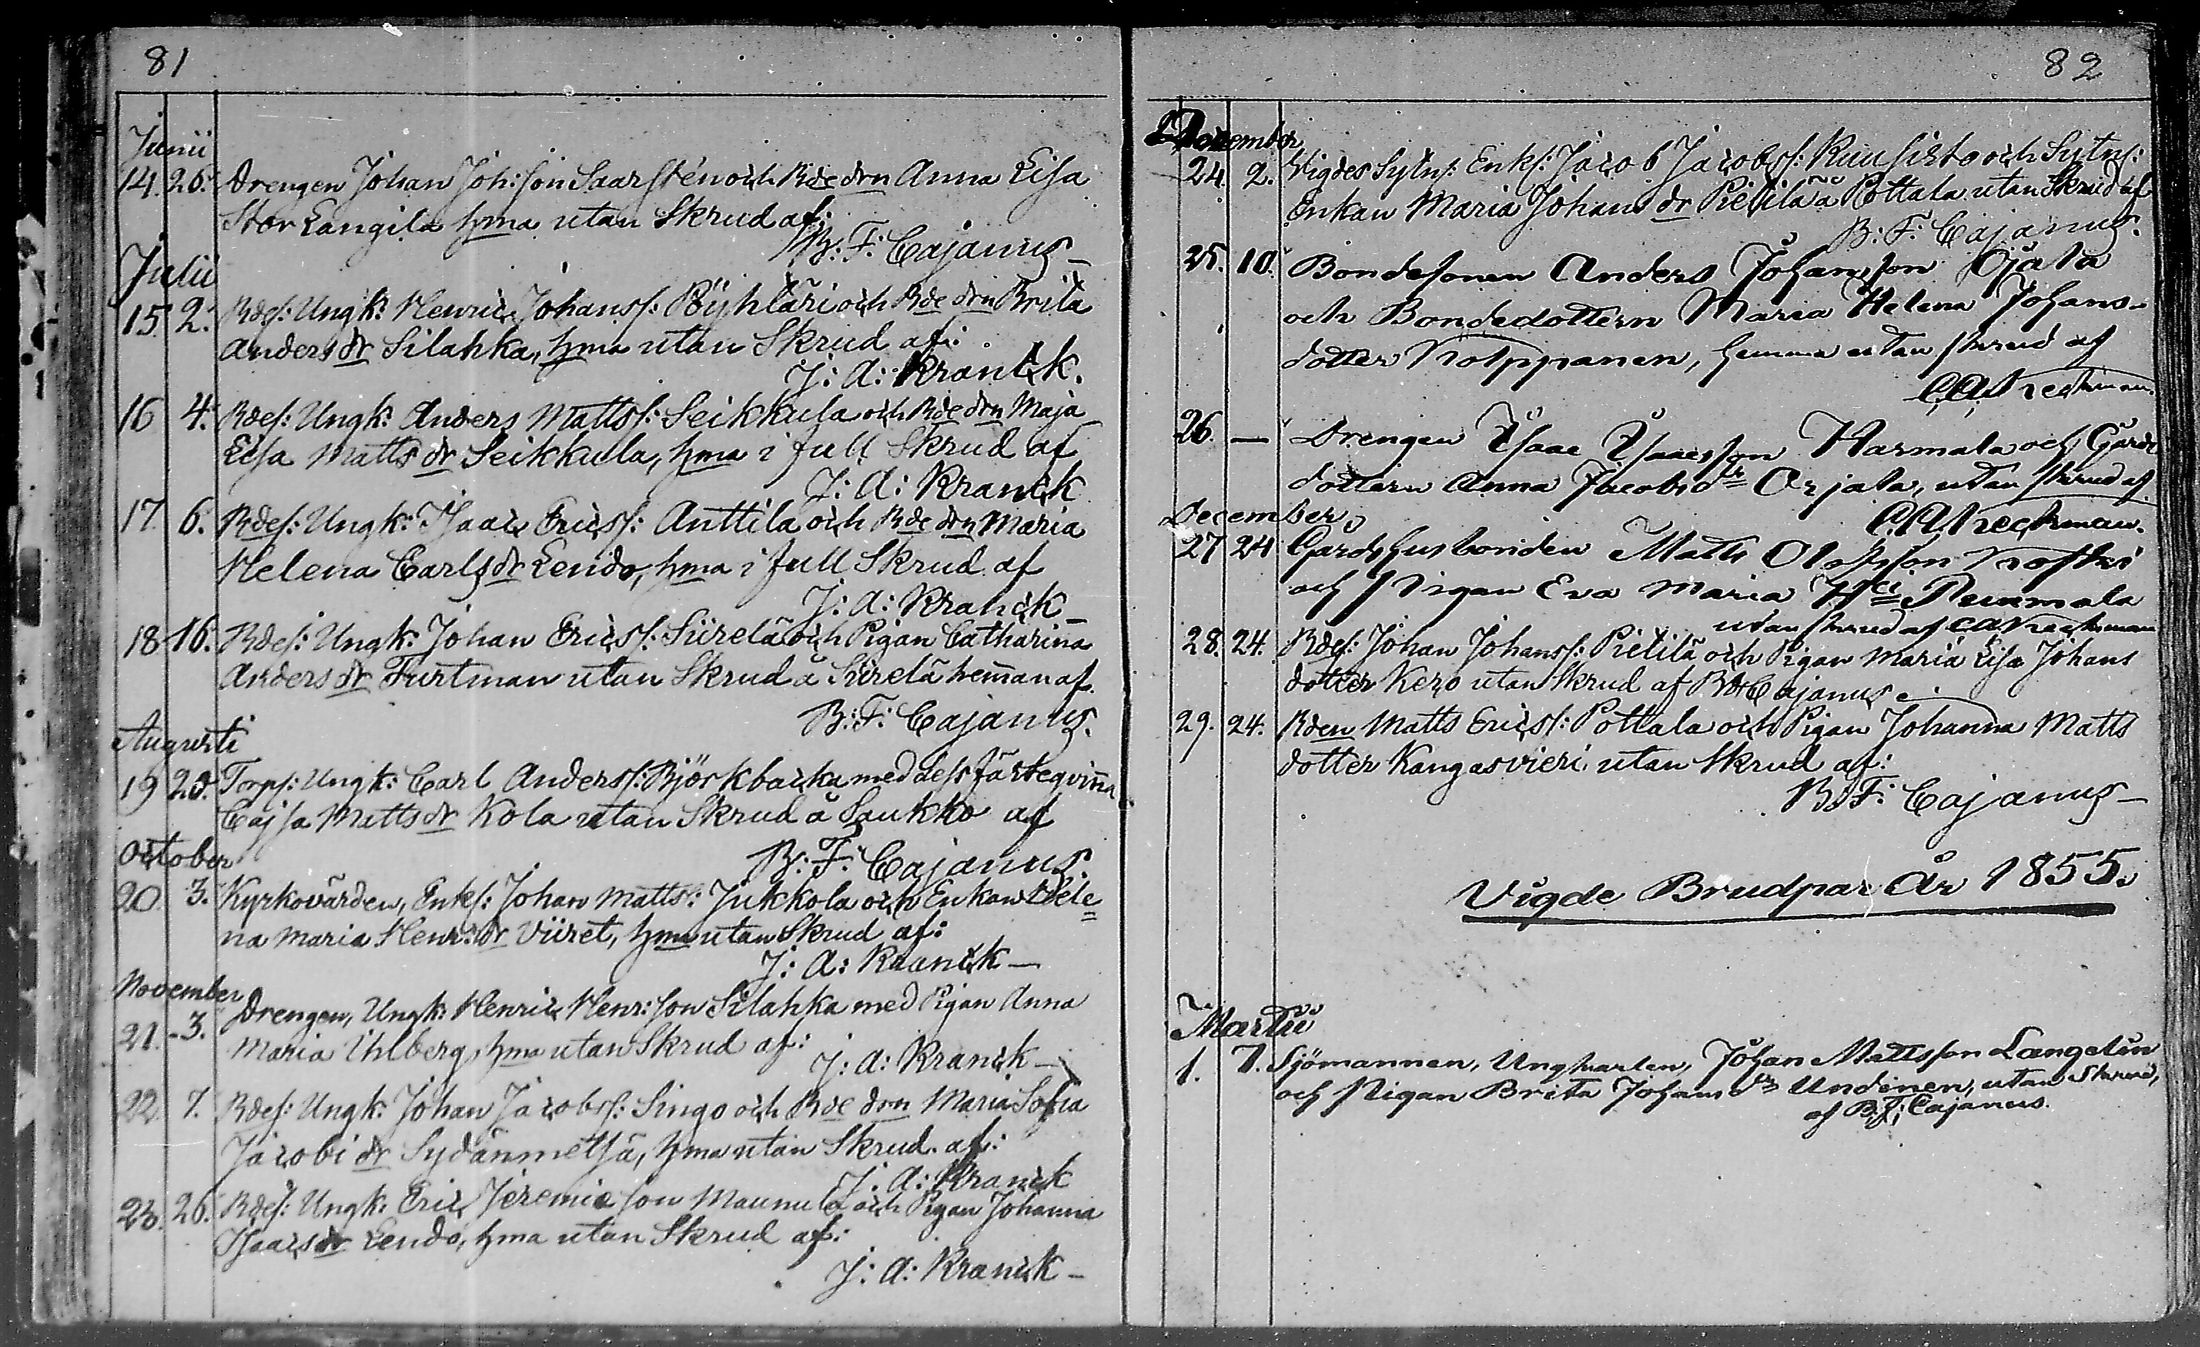 81
Junii
14. 26. Drengen Johan Joh:son Saarstén och Bde drn Anna Lisa
Stor Langila hma utan Skrud af:
B: F: Cajanus
Julii
15. 2. Bdes: Ungk: Henric Johanss: Röyhtäri och Bde drn Brita
Anders dr Silahka, hma utan Skrud af:
J: A: Kranck.
16 4. Bdes: Ungk: Anders Mattss: Seikkula och Bde drn Maja
Lisa Matts dr Seikkula, hma i full Skrud af
J: A: Kranck
17. 6. Bdes: Ungk: Isaac Ericss: Anttila och Bde drn Maria
Helena Carls dr Lendo, hma i full Skrud af
J: A: Kranck
18 16. Bdes: Ungk: Johan Ericss: Siirelä och Pigan Catharina
Anders dr Furtman utan Skrud å Siirelä heman af.
B: F: Cajanus.
Augusti
19 20. Torps: Ungk: Carl Anderss: Björkbacka med dess fästeqvinna
Cajsa Matts dr Kola utan Skrud å Saukko af
B: F: Cajanus.
October
20. 3. Kyrkovärden, Enkl: Johan Matts: Jukkola och Enkan Hele=
na Maria Henr: dr Viiret, hma utan Skrud af:
J: A: Kranck —
November
21. - 3. Drengen, Ungk: Henric Henr:son Silahka med Pigan Anna
Maria Uhlberg, hma utan Skrud af:
J: A: Kranck —
22. 7. Bdes: Ungk: Johan Jacobss: Singo och Bde drn Maria Sofia
Jacobi dr Sydänmetsä, hma utan Skrud af:
J: A: Kranck
23. 26. Bdes: Ungk: Eric Jeremiæson Maunula och Pigan Johanna
Isaacs dr Lendo, hma utan Skrud af:
J: A: Kranck —
82
November
24. 2. Vigdes Sytn: Enkl: Jacob Jacobss: Kuusisto och Sytn:
Enkan Maria Johans dr Pietilä å Pottala utan Skrud af
B: F: Cajanus.
25. 10. Bondesonen Anders Johansson Ojala
och Bondedottern Maria Helena Johans-
dotter Nolppanen, hemma utan skrud af
26. — Drengen Isaac Isaacsson Harmala och Gårds
dottern Anna Jacobs dr Orjala, utan skrud af
December
27 24 Gårdshusbonden Matts Olofsson
och Pigan Eva Maria Hci
utan skrud af
28. 24. Bdes: Johan Johanss: Pietilä och Pigan Maria Lisa Johans
dotter Kero utan Skrud af B: F: Cajanus
29. 24. Bden Matts Ericss: Pottala och Pigan Johanna Matts
dotter Kangasvieri utan Skrud af:
B: F: Cajanus —
Vigde Brudpar År 1855.
Martii
1. 7. Sjömannen, Ungkarlen, Johan Mattsson Langelin
och Pigan Brita Johans dr Undinen, utan Skrud,
af B: F: Cajanus.